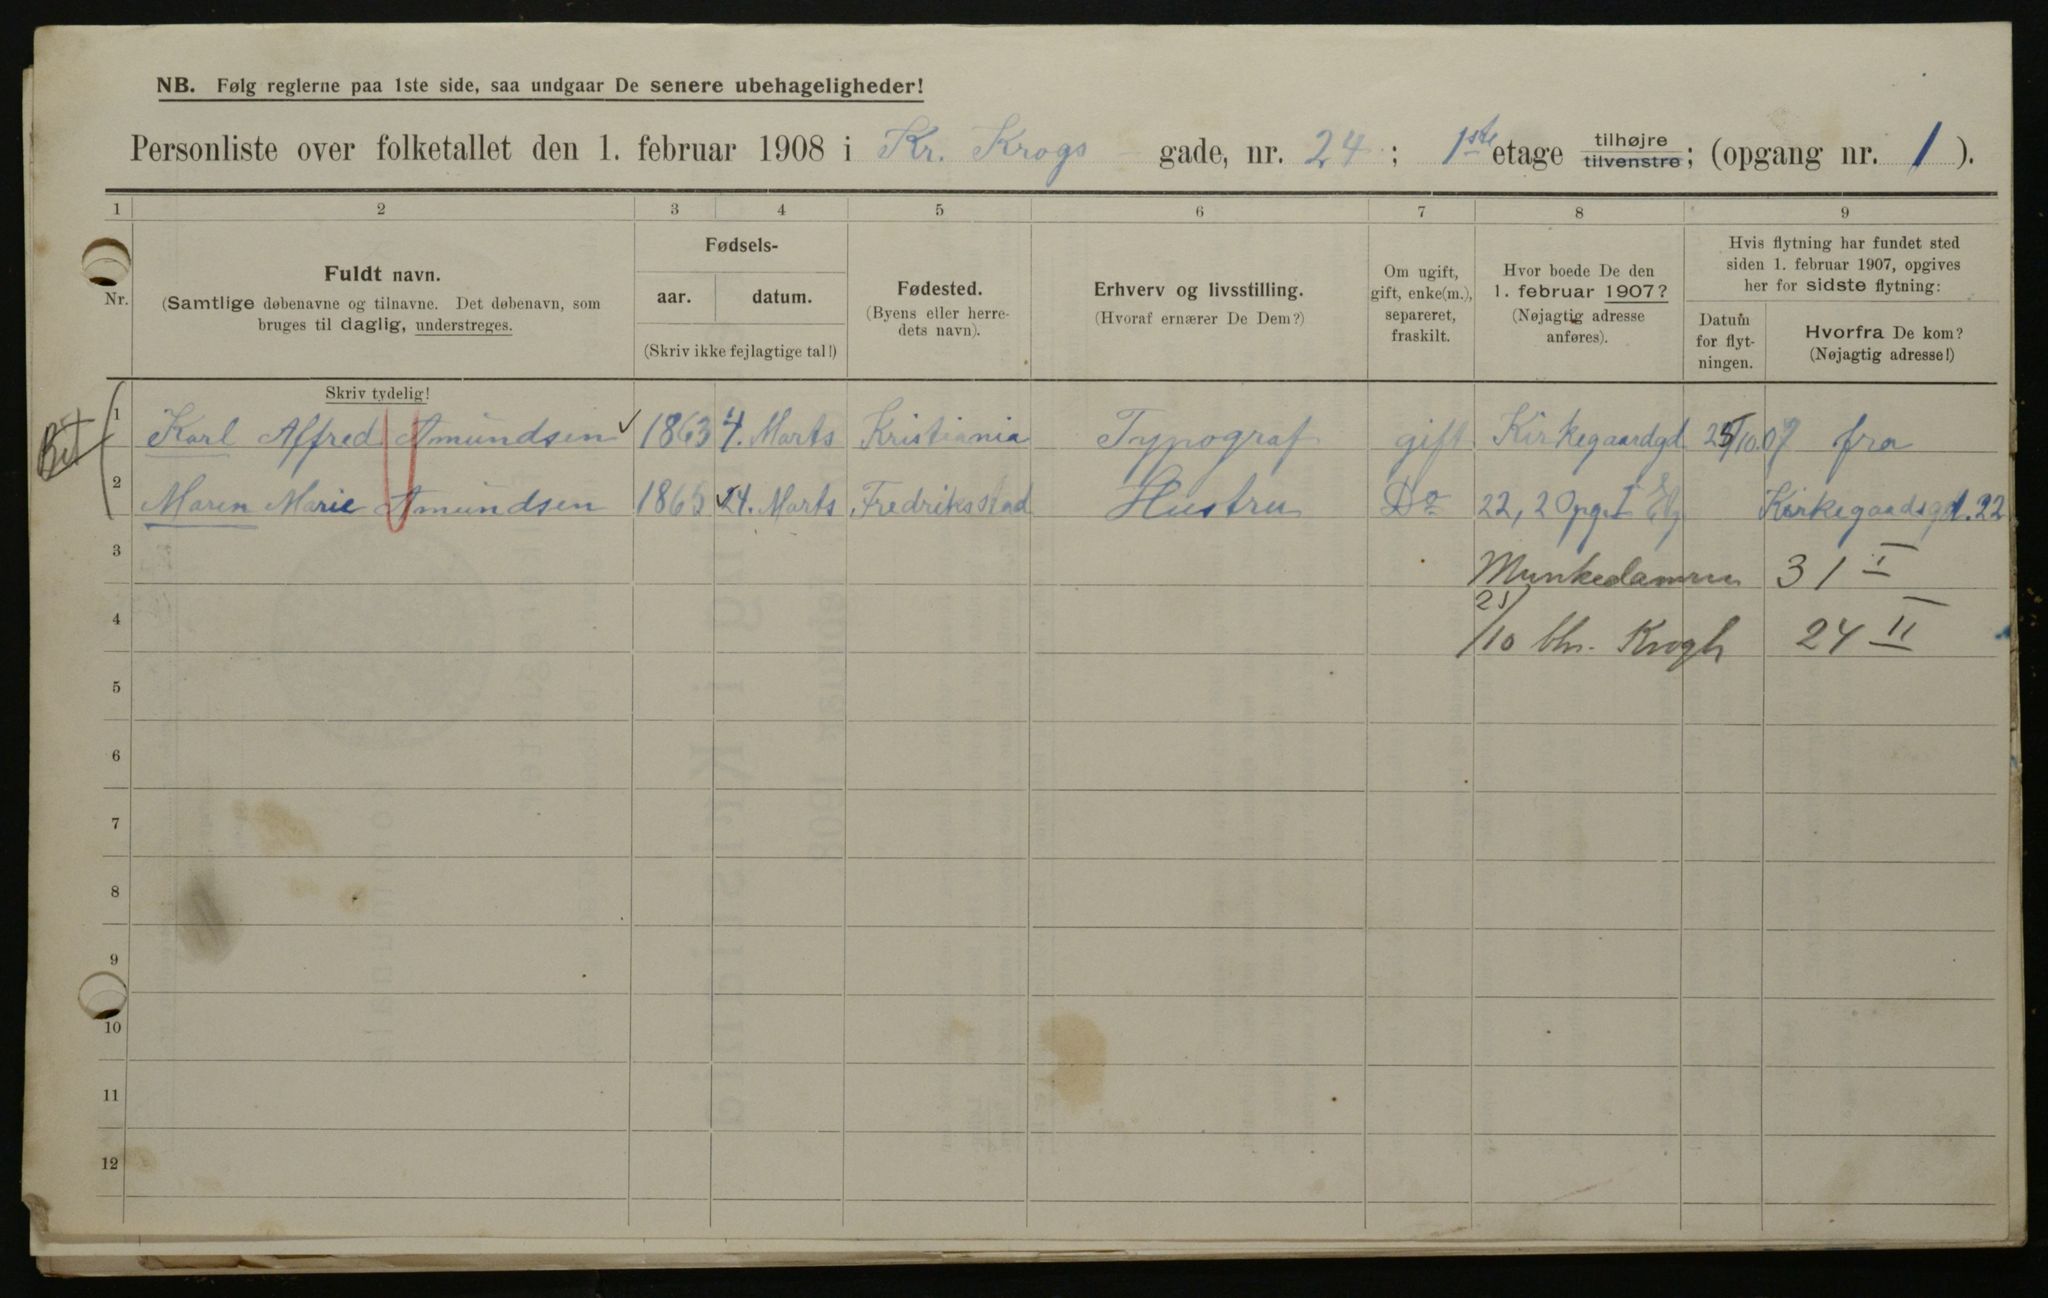 NB. Følg reglerne paa 1ste side, saa undgaar De senere ubehageligheder!
Personliste over folketallet den 1. februar 1908 i Kr. Krogs gade, nr. 24 ; 1ste etage tilhøjre tilvenstre ; (opgang nr. 1 ).
1 2 3 4 5 6 7 8 9
Nr.
Fuldt navn.
(Samtlige døbenavne og tilnavne. Det døbenavn, som
bruges til daglig, understreges.
Skriv tydelig!
Fødsels-
aar. datum.
(Skriv ikke fejlagtige tal!)
Fødested.
(Byens eller herre-
dets navn).
Erhverv og livsstilling.
(Hvoraf ernærer De Dem?)
Om ugift,
gift, enke(m.),
separeret,
fraskilt.
Hvor boede De den
1. februar 1907?
(Nøjagtig adresse
anføres).
Hvis flytning har fundet sted
siden 1. februar 1907, opgives
her for sidste flytning:
Datum
for flyt-
ningen.
Hvorfra De kom?
(Nøjagtig adresse!)
1 Karl Alfred Amundsen 1863 4. Marts Kristiania Typograf gift Kirkegaardgd 25/10 07 fra
2 Maren Marie Amundsen 1865 24. Marts Fredriksstad Hustru Do 22, 2 Opg. I Etg Kirkegaardsgd. 22
3 Munkedammen 31 I
4 25/10 Chr. Krogh 24 II
5
6
7
8
9
10
11
12